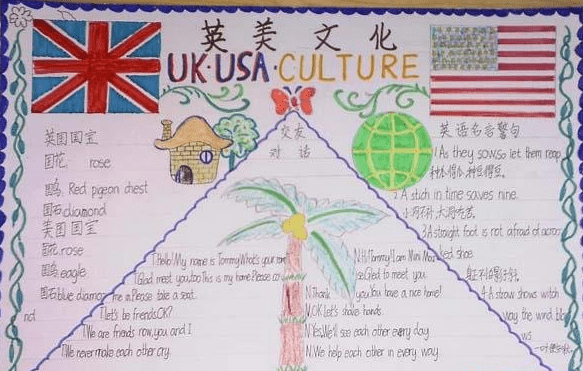 英美文化
UK·USA·CULTURE
英国国宝
国花 rose
国鸟 Red pigeon chest
国石 diamond
美国国宝
国花 rose
国鸟 eagle
国石 blue diamond
交友
对话
T.Hello! My name is Tommy What's your
T.Glad meet you, too This is my home Please
me in. Please take a seat.
T.Let's be friends, OK?
T.We are friends now, you and I
T.We never make each other cry.
N.Hi! Tommy. I am Mini
Glad to meet you.
N.Thank you. You have a nice home!
N.OK. Let's shake hands.
N.Yes, We'll see each other every day
N.We help each other in every way.
英语名言警句
1 As they sow, so let them reap
2 A stich in time saves nine.
3 A straight foot is not afraid of
ked shoe
4 A straw shows witch
way the wind
ws